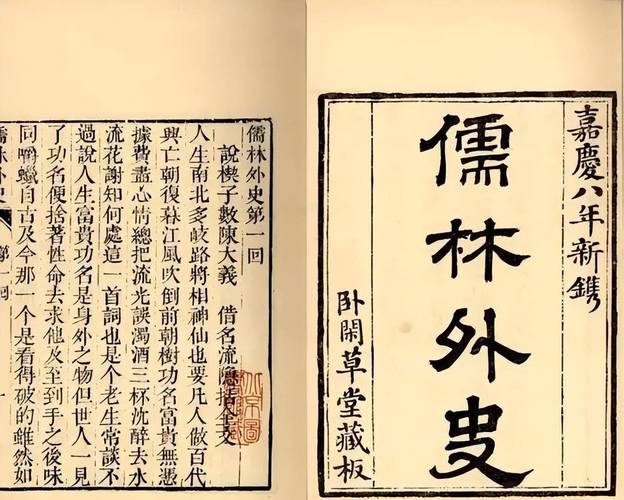 嘉慶八年新鐫
儒林外史
卧閑草堂藏板
儒林外史第一回
說楔子敷陳大義　借名流隱括全文
人生南北多岐路將相神仙也要凡人做百代
興亡朝復暮江風吹倒前朝樹功名富貴無憑
據費盡心情總把流光誤濁酒三杯沈醉去水
流花謝知何處這一首詞也是個老生常談不
過說人生富貴功名是身外之物但世人一見
了功名便捨著性命去求他及至到手之後味
同嚼蠟自古及今那一個是看得破的雖然如
儒林外史　第一回　一